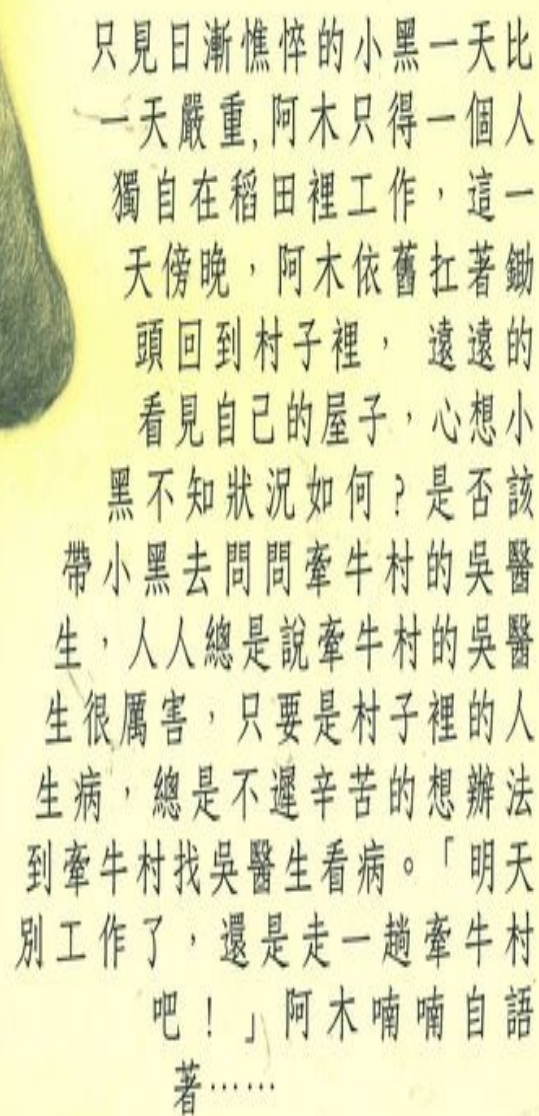 只見日漸憔悴的小黑一天比
一天嚴重,阿木只得一個人
獨自在稻田裡工作，這一
天傍晚，阿木依舊扛著鋤
頭回到村子裡， 遠遠的
看見自己的屋子，心想小
黑不知狀況如何？是否該
帶小黑去問問牽牛村的吳醫
生，人人總是說牽牛村的吳醫
生很厲害，只要是村子裡的人
生病，總是不遲辛苦的想辦法
到牽牛村找吳醫生看病。「明天
別工作了，還是走一趟牽牛村
吧！」阿木喃喃自語
著……